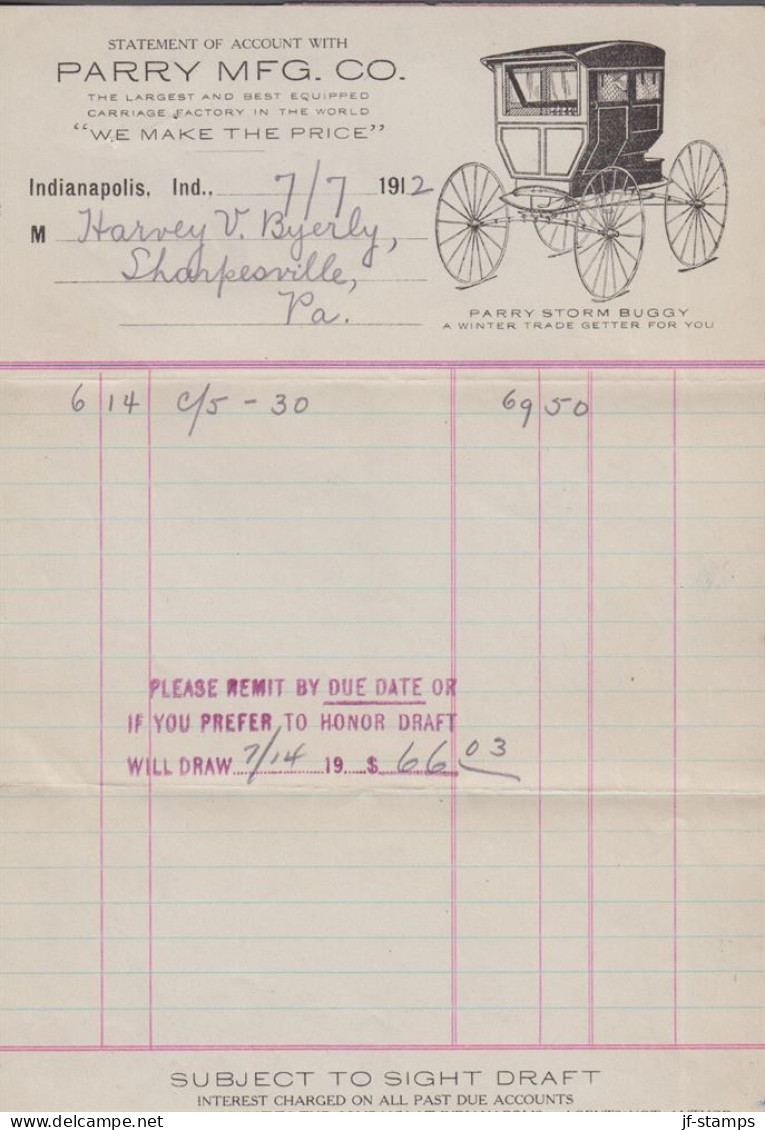 STATEMENT OF ACCOUNT WITH
PARRY MFG. CO.
THE LARGEST AND BEST EQUIPPED
CARRIAGE FACTORY IN THE WORLD
"WE MAKE THE PRICE"
Indianapolis, Ind., 7/7 1912
M Harvey V. Byerly,
Sharpesville,
Pa.
PARRY STORM BUGGY
A WINTER TRADE GETTER FOR YOU
6 14 c/5 - 30 69 50
PLEASE REMIT BY DUE DATE OR
IF YOU PREFER TO HONOR DRAFT
WILL DRAW 7/14 19 $ 66 03
SUBJECT TO SIGHT DRAFT
INTEREST CHARGED ON ALL PAST DUE ACCOUNTS
delcampe.net
jf-stamps